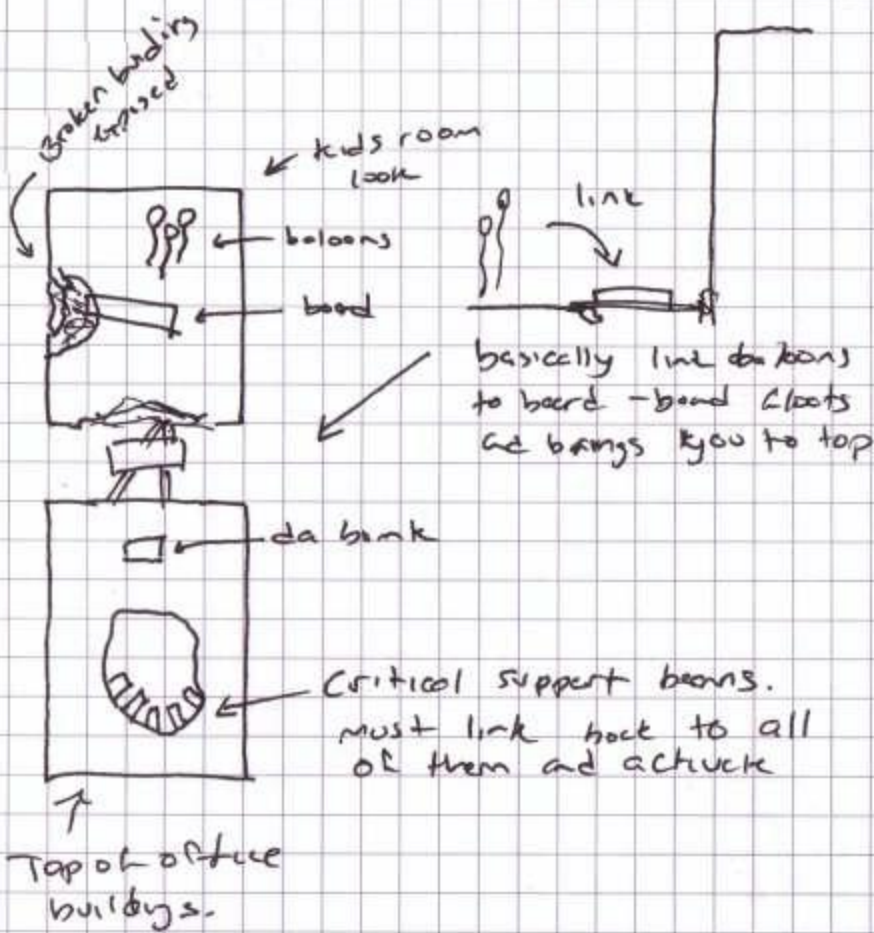 Broken building
exposed
kids room
look
baloons
board
link
basically link baloons
to board - board floats
and brings you to top
da bomb
Critical support beams.
must link back to all
of them and activate
Top of office
buildings.